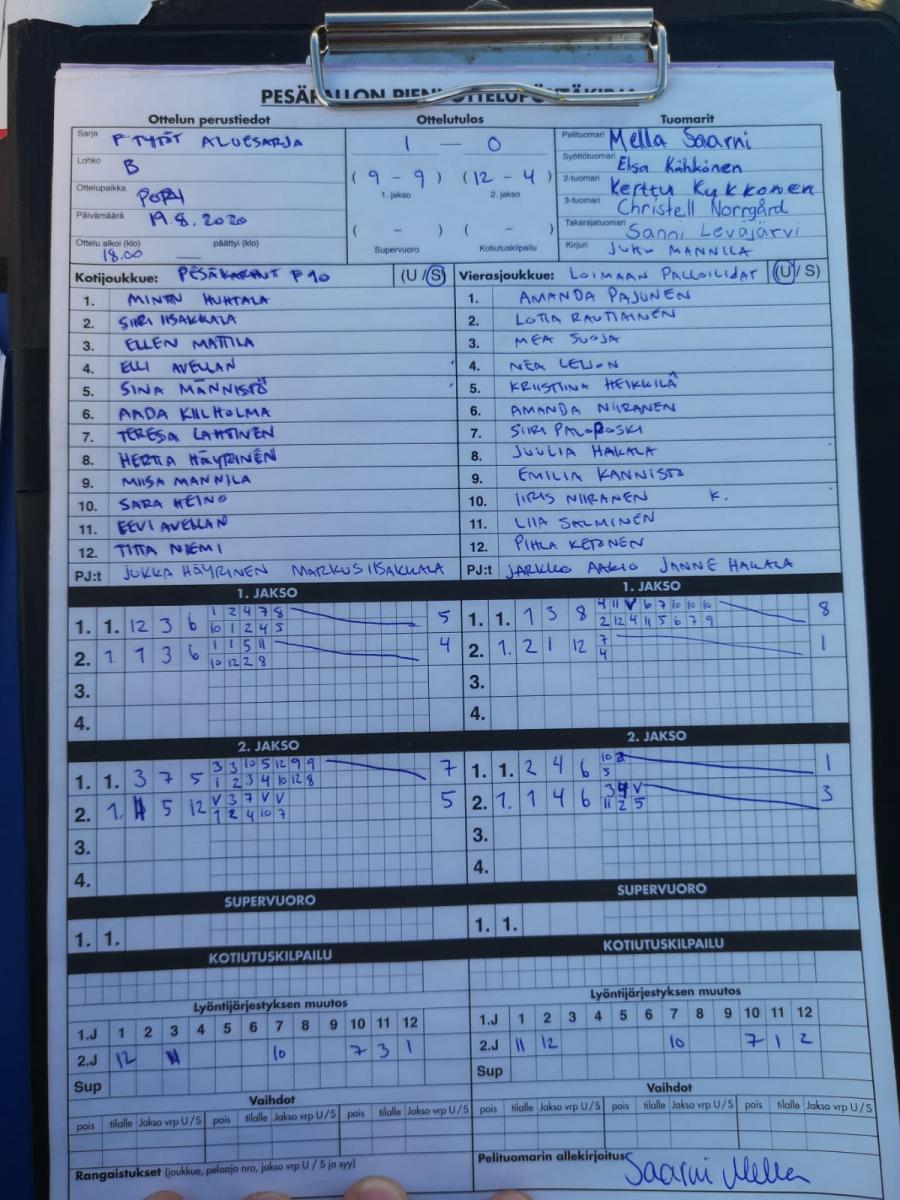 Ottelun perustiedot Ottelutulos Tuomarit
Sarja F TYTÖT ALUESARJA 1 — 0 Pelituomari Mella Saarni
Lohko B (9 - 9) (12 - 4) Syöttötuomari Elsa Kähkönen
1. jakso 2. jakso 2-tuomari Kerttu Kykkonen
Ottelupaikka PORI 3-tuomari Christell Norrgård
Päivämäärä 19.8.2020 ( - ) ( - ) Takarajatuomari Sanni Leväjärvi
Ottelu alkoi (klo) päättyi (klo) Supervuoro Kotiutuskilpailu Kirjuri JUHO MANNILA
18.00 —
Kotijoukkue: PESÄKARHUT F10 (U/S) Vierasjoukkue: LOIMAAN PALLOILIJAT (U/S)
1. MINTTU HUHTALA 1. AMANDA PAJUNEN
2. SIIRI IISAKKALA 2. LOTTA RAUTIAINEN
3. ELLEN MATTILA 3. MEA SUOJA
4. ELLI AVELLAN 4. NEA
5. SINA MÄNNISTÖ 5. KRISTIINA HEIKKILÄ
6. AADA KIILHOLMA 6. AMANDA NIIRANEN
7. TERESA LAHTINEN 7. SIIRI PALOPOSKI
8. HERTTA HÄYRINEN 8. JUULIA HAKALA
9. MIISA MANNILA 9. EMILIA KANNISTO
10. SARA HEINO 10. IIRIS NIIRANEN K.
11. EEVI AVELLAN 11. LIIA SALMINEN
12. TITTA NIEMI 12. PIHLA KETONEN
PJ:t JUKKA HÄYRINEN MARKUS IISAKKALA PJ:t JARKKO AAKIO JANNE HAKALA
1. JAKSO 1. JAKSO
1 2 4 7 8 4 11 V 6 7 10 10 10
1. 1. 12 3 6 5 1. 1. 1 3 8 8
10 1 2 4 5 2 12 4 11 5 6 7 9
1 1 5 11 7
2. 1. 1 3 6 4 2. 1. 2 1 12 1
10 12 2 8 4
3. 3.
4. 4.
2. JAKSO 2. JAKSO
3 3 10 5 12 9 9 10
1. 1. 3 7 5 7 1. 1. 2 4 6 1
1 2 3 4 10 12 8 5
V 3 7 V V 3 4 V
2. 1. 5 12 5 2. 1. 1 4 6 3
1 2 4 10 7 11 2 5
3. 3.
4. 4.
SUPERVUORO SUPERVUORO
1. 1. 1. 1.
KOTIUTUSKILPAILU KOTIUTUSKILPAILU
Lyöntijärjestyksen muutos Lyöntijärjestyksen muutos
1.J 1 2 3 4 5 6 7 8 9 10 11 12 1.J 1 2 3 4 5 6 7 8 9 10 11 12
2.J 12 11 10 7 3 1 2.J 11 12 10 7 1 2
Sup Sup
Vaihdot Vaihdot
pois tilalle Jakso vrp U/S pois tilalle Jakso vrp U/S pois tilalle Jakso vrp U/S pois tilalle Jakso vrp U/S
Rangaistukset (joukkue, pelaaja nro, jakso vrp U/S ja syy) Pelituomarin allekirjoitus Saarni Mella